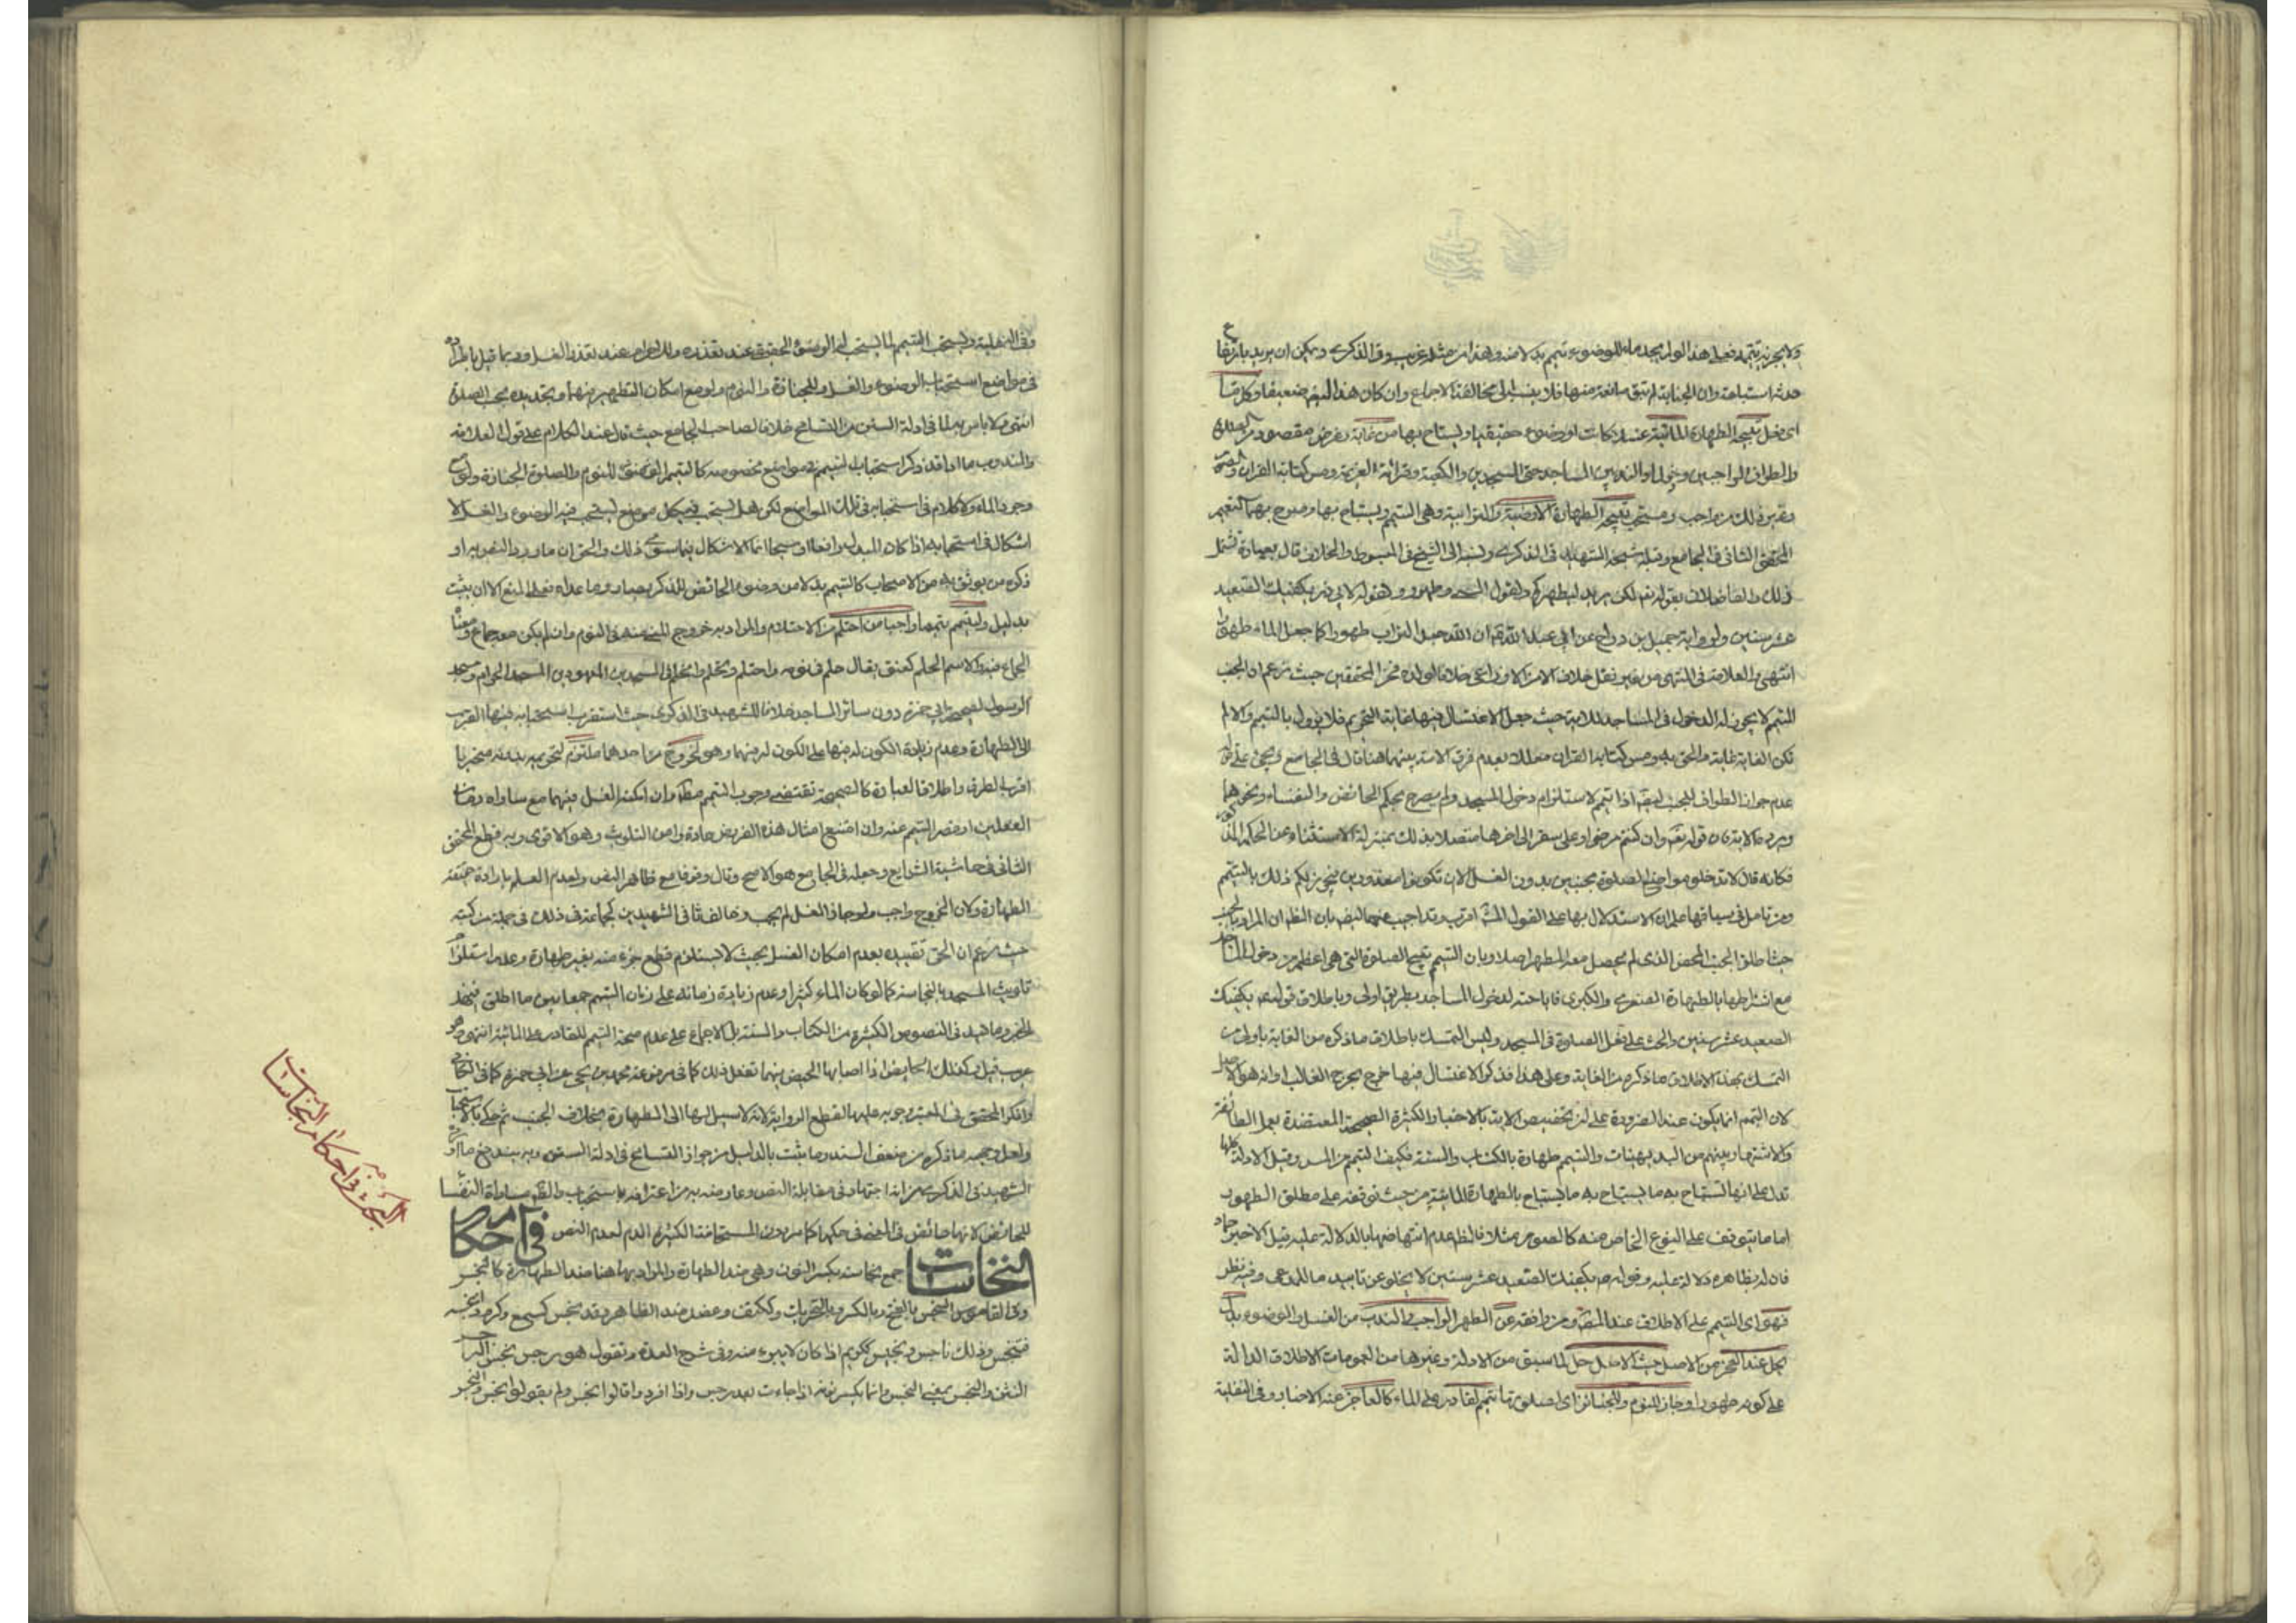 ولا يجزيه تيممه فعلى هذا لو لم يجد ماء للوضوء تيمم بدلا منه وهذا من مثله غريب وفي الذكرى ويمكن ان يريد بارتفاع
حدثه استباحة وان الجنابة لم تبق مانعة منها فلا ينسب الى مخالفة الاجماع وان كان هذا ضعيفا وكل ما
اي فعل تبيحه الطهارة المائية غسلا كانت او وضوء حقيقيا ويستباح بها من غاية وغرض مقصود من الصلوة
والطواف الواجبين ودخول المساجد حتى المسجدين والكعبة وقرائة العزيمة ومس كتابة القران
وغير ذلك من واجب ومستحب تبيحه الطهارة الارضية والترابية وهي التيمم ويستباح بها وصرح بهذا التعميم
المحقق الثاني في الجامع وقبله شيخه الشهيد في الذكرى ونسبه الى الشيخ في المبسوط والخلاف قال بعبارة تشمل
ذلك والفاضلان لقوله تعالى ولكن يريد ليطهركم ولقول النبي وطهورا ولقوله لابي ذر يكفيك الصعيد
عشر سنين ولرواية جميل بن دراج عن ابي عبد الله ع ان الله جعل التراب طهورا كما جعل الماء طهورا
انتهى والعلامة في المنتهى من غير نقل خلاف الا من الاوزاعي خلافا لولده فخر المحققين حيث زعم ان الجنب
المتيمم لا يجوز له الدخول في المساجد للاية حيث جعل الاغتسال فيها غاية التحريم فلا يزول بالتيمم والا لم
تكن الغاية غاية والحق به ومس كتابة القران معللا بعدم فرق الامة بينهما هنا قال في الجامع ويجيء على قوله
عدم جواز الطواف للجنب ايضا اذا تيمم لاستلزام دخول المسجد ولم يصرح بحكم الحائض والنفساء ونحوهما
ويرد ما لا بد فان قوله تعالى وان كنتم مرضى او على سفر الى اخرها متصلا بذلك بمنزلة الاستثناء عن الحكم
فكانه قال لا تدخلوا مواضع الصلوة مجنبين بدون الغسل الا ان تكونوا معذورين فيجوز لكم ذلك بالتيمم
ومن تامل في سياقها علم ان الاستدلال بها على القول اقرب وقد اجيب عنهما ايضا بان الظ ان المراد بالجنب
حيث اطلق الجنب المحض الذي لم يحصل معه المطهر اصلا وبان التيمم تبيح الصلوة التي هي اعظم من دخول المساجد
مع اشتراطها بالطهارة الصغرى والكبرى فاباحته لدخول المساجد بطريق اولى وباطلاق قوله ع يكفيك
الصعيد عشر سنين والحث على فعل الصلوة في المسجد وليس التمسك باطلاق ما ذكره من الغاية باولى من
التمسك بهذا الاطلاق ما ذكره من الغاية وعلى هذا فذكر الاغتسال فيها خرج مخرج الغالب او انه هو الاصل
لان التيمم انما يكون عند الضرورة على ان تخصيص الاية بالاخبار الكثيرة الصحيحة المعتضدة بعمل الطائفة
والاشتهار بينهم من البديهيات والتيمم طهارة بالكتاب والسنة فكيف وقبل الادلة كلها
تدل على انها تستباح به ما يستباح به ما يستباح بالطهارة المائية من حيث توقفه على مطلق الطهور
اما ما يتوقف على النوع الخاص منه كالصوم مثلا فالظ عدم انتهاضها بالدلالة عليه قيل الا خبر حماد
فان له بظاهره دلالة عليه وقوله ص يكفيك الصعيد عشر سنين لا يخلو عن تاييد ما للمدعى وفيه نظر
فهو اي التيمم على الاطلاق عند المص ومن وافقه عن الطهر الواجب والندب من الغسل والوضوء بدل
بحل عند العجز من الاصل حيث الاصل حل لما سبق من الادلة وغيرها من العمومات الاطلاقات الدالة
على كونه طهورا وجاز للنوم والجنائز اي لصلوتها تيمم لقادر على الماء كالعاجز عنه الاخبار وفي النفلية
وفي النفلية ويستحب التيمم لما يستحب له الوضوء الحقيقي عند تعذره وللاحرام عند تعذر الغسل وربما قيل باطراده
في مواضع استحباب الوضوء والغسل وللجنازة والنوم ولو مع امكان التطهير منهما وتجديده بحسب الصلوة
انتهى ولا باس به لما في ادلة السنن من التسامح خلافا لصاحب الجامع حيث قال عند الكلام على قول العلامة
والمندوب ما عداه قد ذكر استحباب التيمم في مواضع مخصوصة كالتيمم للنوم والصلوة الجنازة ولو مع
وجود الماء ولا كلام في استحبابه في تلك المواضع لكن هل يستحب في كل موضع يستحب فيه الوضوء والغسل لا
اشكال في استحبابه اذا كان المبدل رافعا او مبيحا انما الاشكال فيما سوى ذلك والحق ان ما ورد النص به او
ذكره من يوثق به من الاصحاب كالتيمم بدلا من وضوء الحائض للذكر يصار وما عداه فعلى المنع الا ان يثبت
بدليل وليتيمم تيمما واجبا من احتلم من الاحتلام والمراد به خروج المني منه في النوم وان لم يكن معه جماع ومعنا
الجماع منه والاسم الحلم كعنق يقال حلم في نومه واحتلم وتحلم وانحلم في المسجدين المعهودين المسجد الحرام ومسجد
الرسول لصحيحة ابي حمزة دون سائر المساجد خلافا للشهيد في الذكرى حيث استقرب استحبابه فيها للقرب
الى الطهارة وعدم زيادة الكون له فيها على الكون له فيهما وهو لخروج من احدهما ملتزم لتحريمه بدونه متحريا
اقرب الطرق واطلاق العبارة كالصحيحة تقتضي وجوب التيمم مطلقا وان امكنه الغسل فيهما مع مساواة زمان
الغسل او قصر التيمم عنه وان امتنع امثال هذه الفريض عادة وامن التلويث وهو الاقوى وبه قطع المحقق
الثاني في حاشية الشرايع وجعله في الجامع هو الاصح وقال وقوفا مع ظاهر النص ولعدم العلم بارادة حقيقة
الطهارة ولان الخروج واجب ولو جاز الغسل لم يجب وخالف ثاني الشهيدين كجماعة في ذلك في جملة من كتبه
حيث زعم ان الحق تقييده بعدم امكان الغسل بحيث لا يستلزم قطع جزء منه بغير طهارة وعدم استلزام
تلويث المسجد بالنجاسة كما لو كان الماء كثيرا وعدم زيادة زمانه على زمان التيمم جمعا بين ما اطلق في هذا
الخبر وما قيد في النصوص الكثيرة من الكتاب والسنة بل الاجماع على عدم صحة التيمم للقادر على المائية انتهى وهو
غريب قيل وكذلك الحايض اذا اصابها الحيض فيهما تفعل ذلك كما في مرفوعة محمد بن يحيى عن ابي حمزة كما في الكافي
وانكر المحقق في المعتبر وجوبه عليها لقطع الرواية لانه لا سبيل لها الى الطهارة بخلاف الجنب ثم حكم باستحبابه
ولعل وجهه ما ذكره من ضعف السند وما يثبت بالدليل من جواز التسامح في ادلة السنن وبه يندفع ما اورده
الشهيد في الذكرى من انه اجتهاد في مقابلة النص وعارضه به من اعترافه باستحباب والظ مساواة النفساء
للحائض لانها حائض في المعنى في حكمها كما مر دون المستحاضة الكثيرة الدم لعدم النص في احكام
النجاسات جمع نجاسة بكسر النون وهي ضد الطهارة والمراد بها هنا ضد الطهارة كالنجس
وفي القاموس النجس بالفتح وبالكسر وبالتحريك وككتف وعضد ضد الطاهر وقد نجس كسمع وكرم وانجسه
فتنجس وذلك ناجس ونجيس ككريم اذا كان لا يبرء منه وفي شرح العمدة وتقول هو رجس نجس
النتن والنجس بمعنى النجس وانما يكسر نونه اذا جاءت بعد رجس واذا افردوا قالوا نجس ولم يقولوا نجس والنجس
البحث في احكام النجاسات